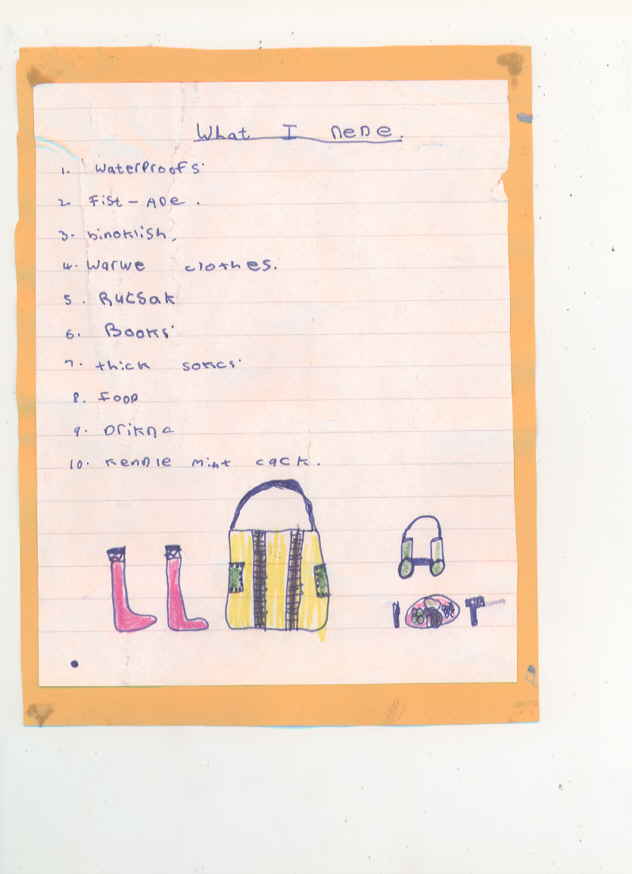 What I nene.
1. Waterproofs.
2. Fist - Ade.
3. binoklish.
4. Warwe clothes.
5. Rutsak
6. Books.
7. thick sokcs.
8. Food
9. Drikna
10. Kendle mint cack.